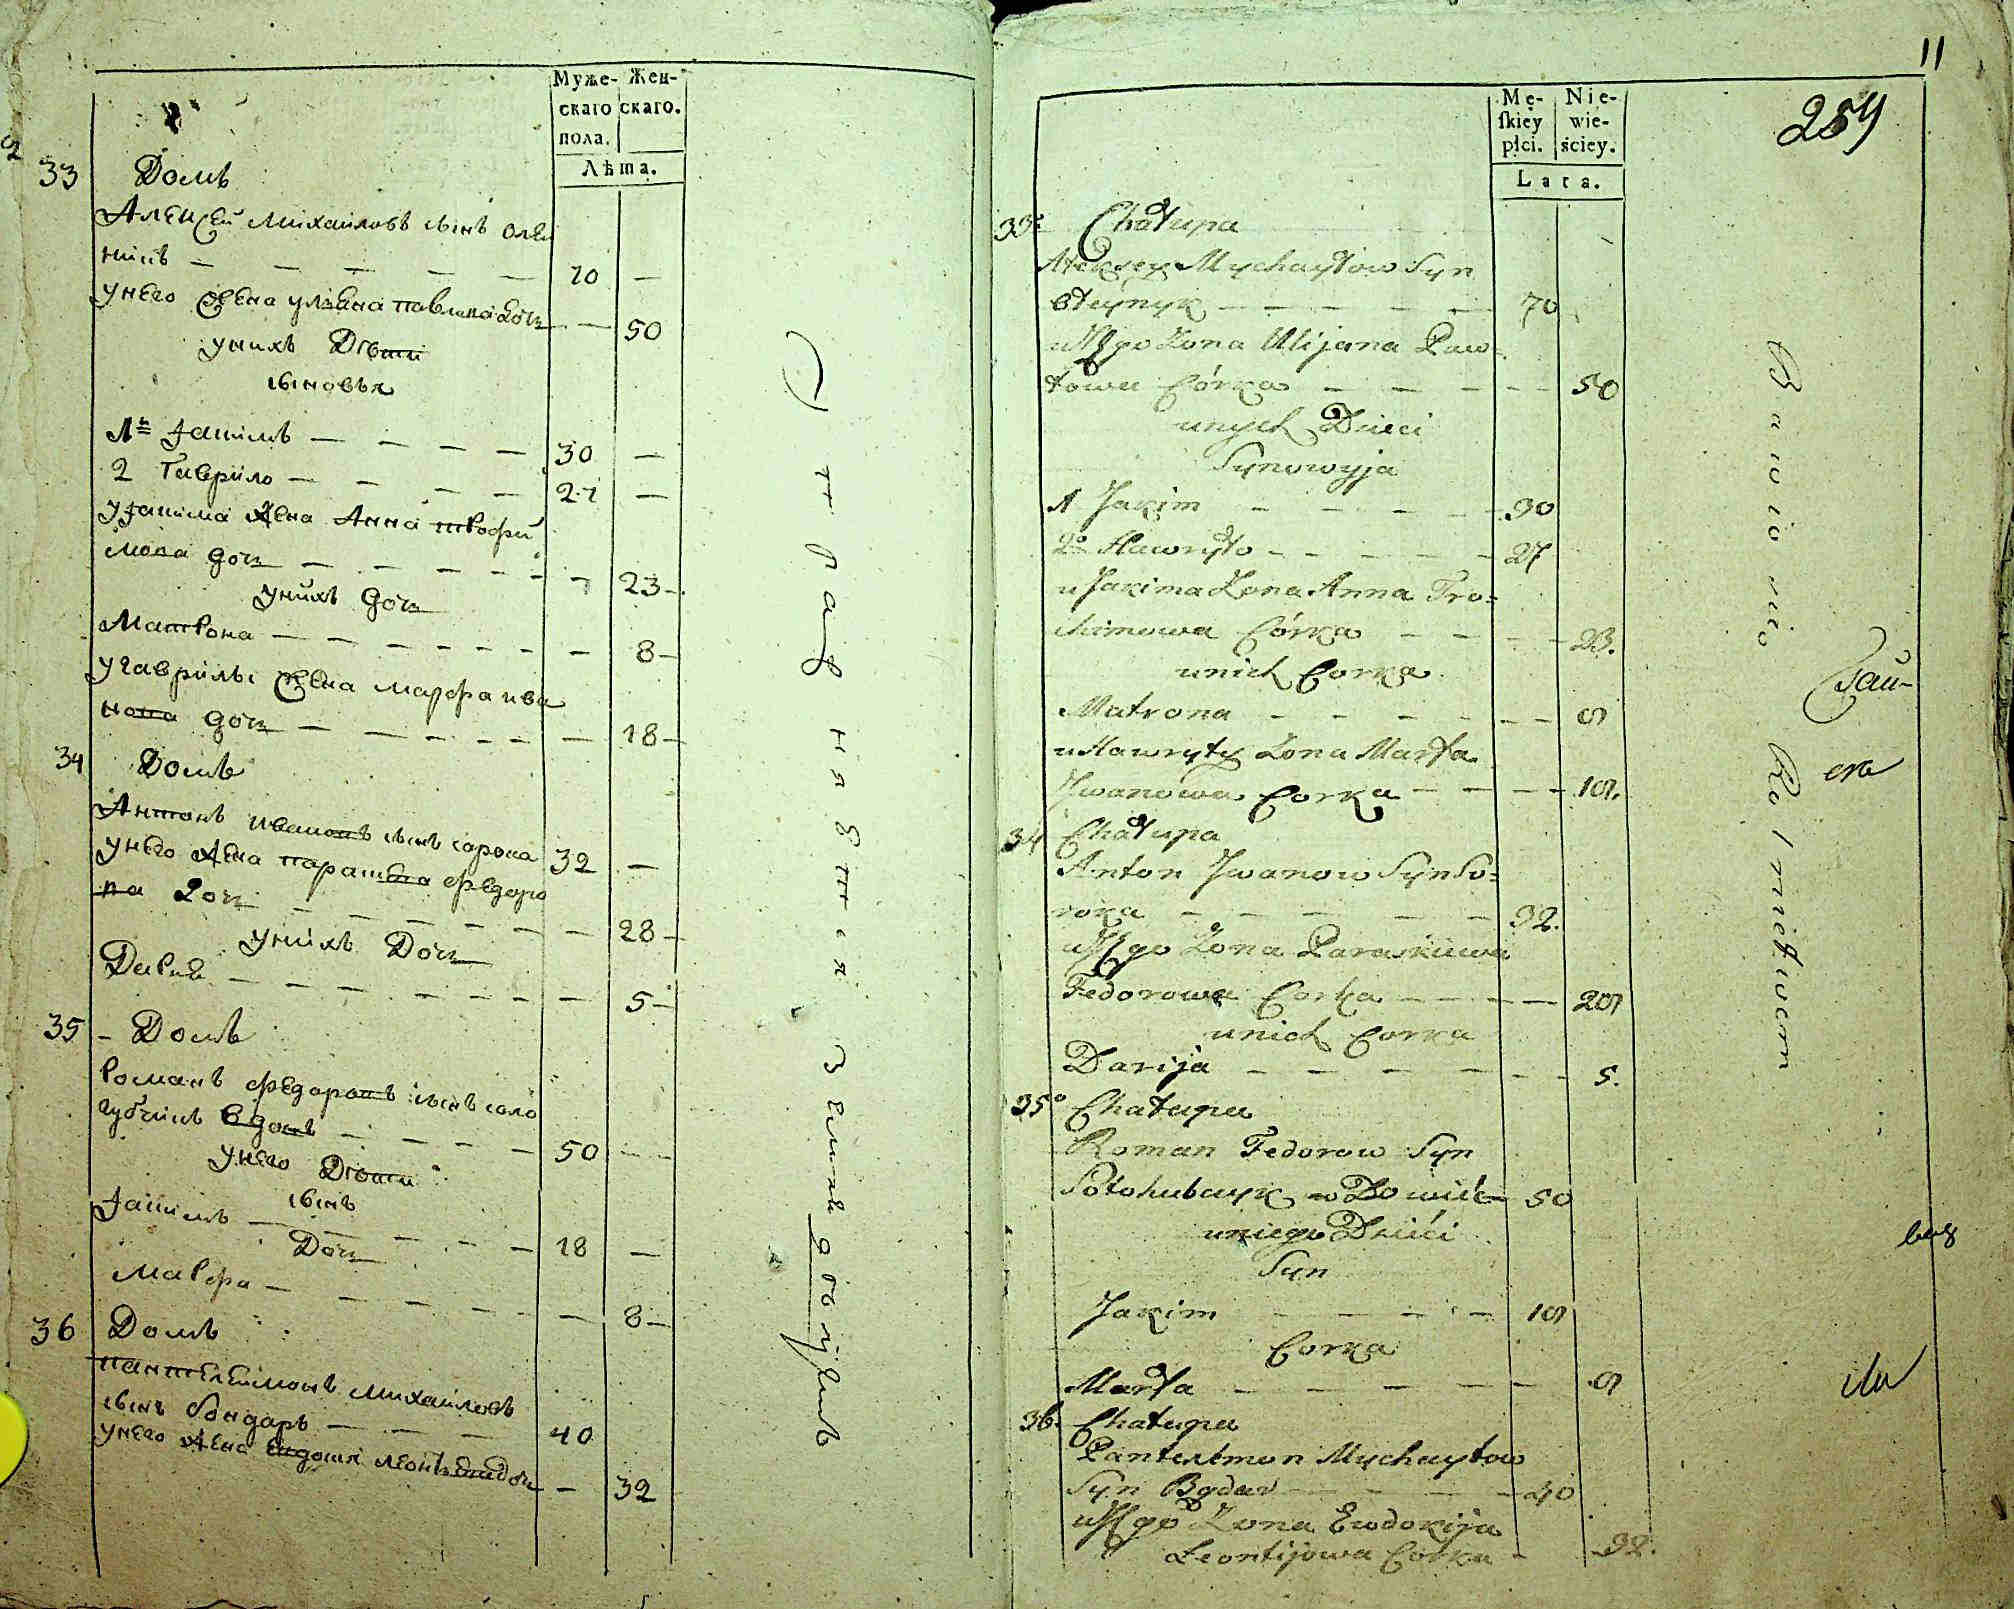 Муже- Жен-
скаго скаго.
пола.
Лѣта.
33 Домъ
Алексей Михайловъ сынъ Олей
никъ — — — — — 70 —
У него жена Улiана Павлова дочь — — 50
У нихъ Дѣти
сыновья
1й Iакимъ — — — — 30 —
2 Гаврило — — — — 27 —
У Iакима жена Анна Трофи
мова дочь — — — — — 23 —
У нихъ дочь
Матрона — — — — — — 8 —
У Гаврилы жена Марфа Ива
нова дочь — — — — — — 18 —
34 Домъ
Антонъ Ивановъ сынъ Сорока 32 —
У него жена Парасква Федоро
ва дочь — — — — — — 28 —
У нихъ Дочь
Дарiя — — — — — — 5 —
35 — Домъ
Романъ Федоровъ сынъ Соло
губчикъ вдовъ — — — — 50 — —
У него Дѣти
сынъ
Iакимъ — — — — — 18 —
Дочь
Марфа — — — — — — 8 —
36 Домъ
Пантелеймонъ Михайловъ
сынъ Бондарь — — — 40
У него жена Евдокiя Леонтiева дочь — 32
Упражняется земледѣлiемъ
11
259
Mę- Nie-
skiey wie-
płci. ściey.
Lata.
33. Chałupa
Alexsey Mychayłow Syn
Oleynyk — — — — — 70
u Jego Żona Ulijana Paw=
łowa Córka — — — — 50
u nych Dzieci
Synowyja
1 Jakim — — — — — 30
2º Hawryło — — — — — 27
u Jakima Żona Anna Tro=
chimowa Córka — — — — 23.
u nich Corka
Matrona — — — — — — 8
u Hawryły Żona Marfa
Jwanowa Corka — — — — 18.
34 Chałupa
Anton Jwanow Syn So=
roka — — — — — 32.
u Jego Żona Paraskiwa
Fedorowa Corka — — — — 28
u nich Corka
Darija — — — — — — 5.
35º Chałupa
Roman Fedorow Syn
Sołohubczyk w Dowić— 50
u niego Dzieći
Syn
Jakim — — — — — 18
Corka
Marfa — — — — — — 8
36. Chałupa
Pantelemon Mychayłow
Syn Bodar — — — — — 40
u Jego Żona Ewdokija
Leontijowa Corka — 32.
Bawio się Rolnictwem